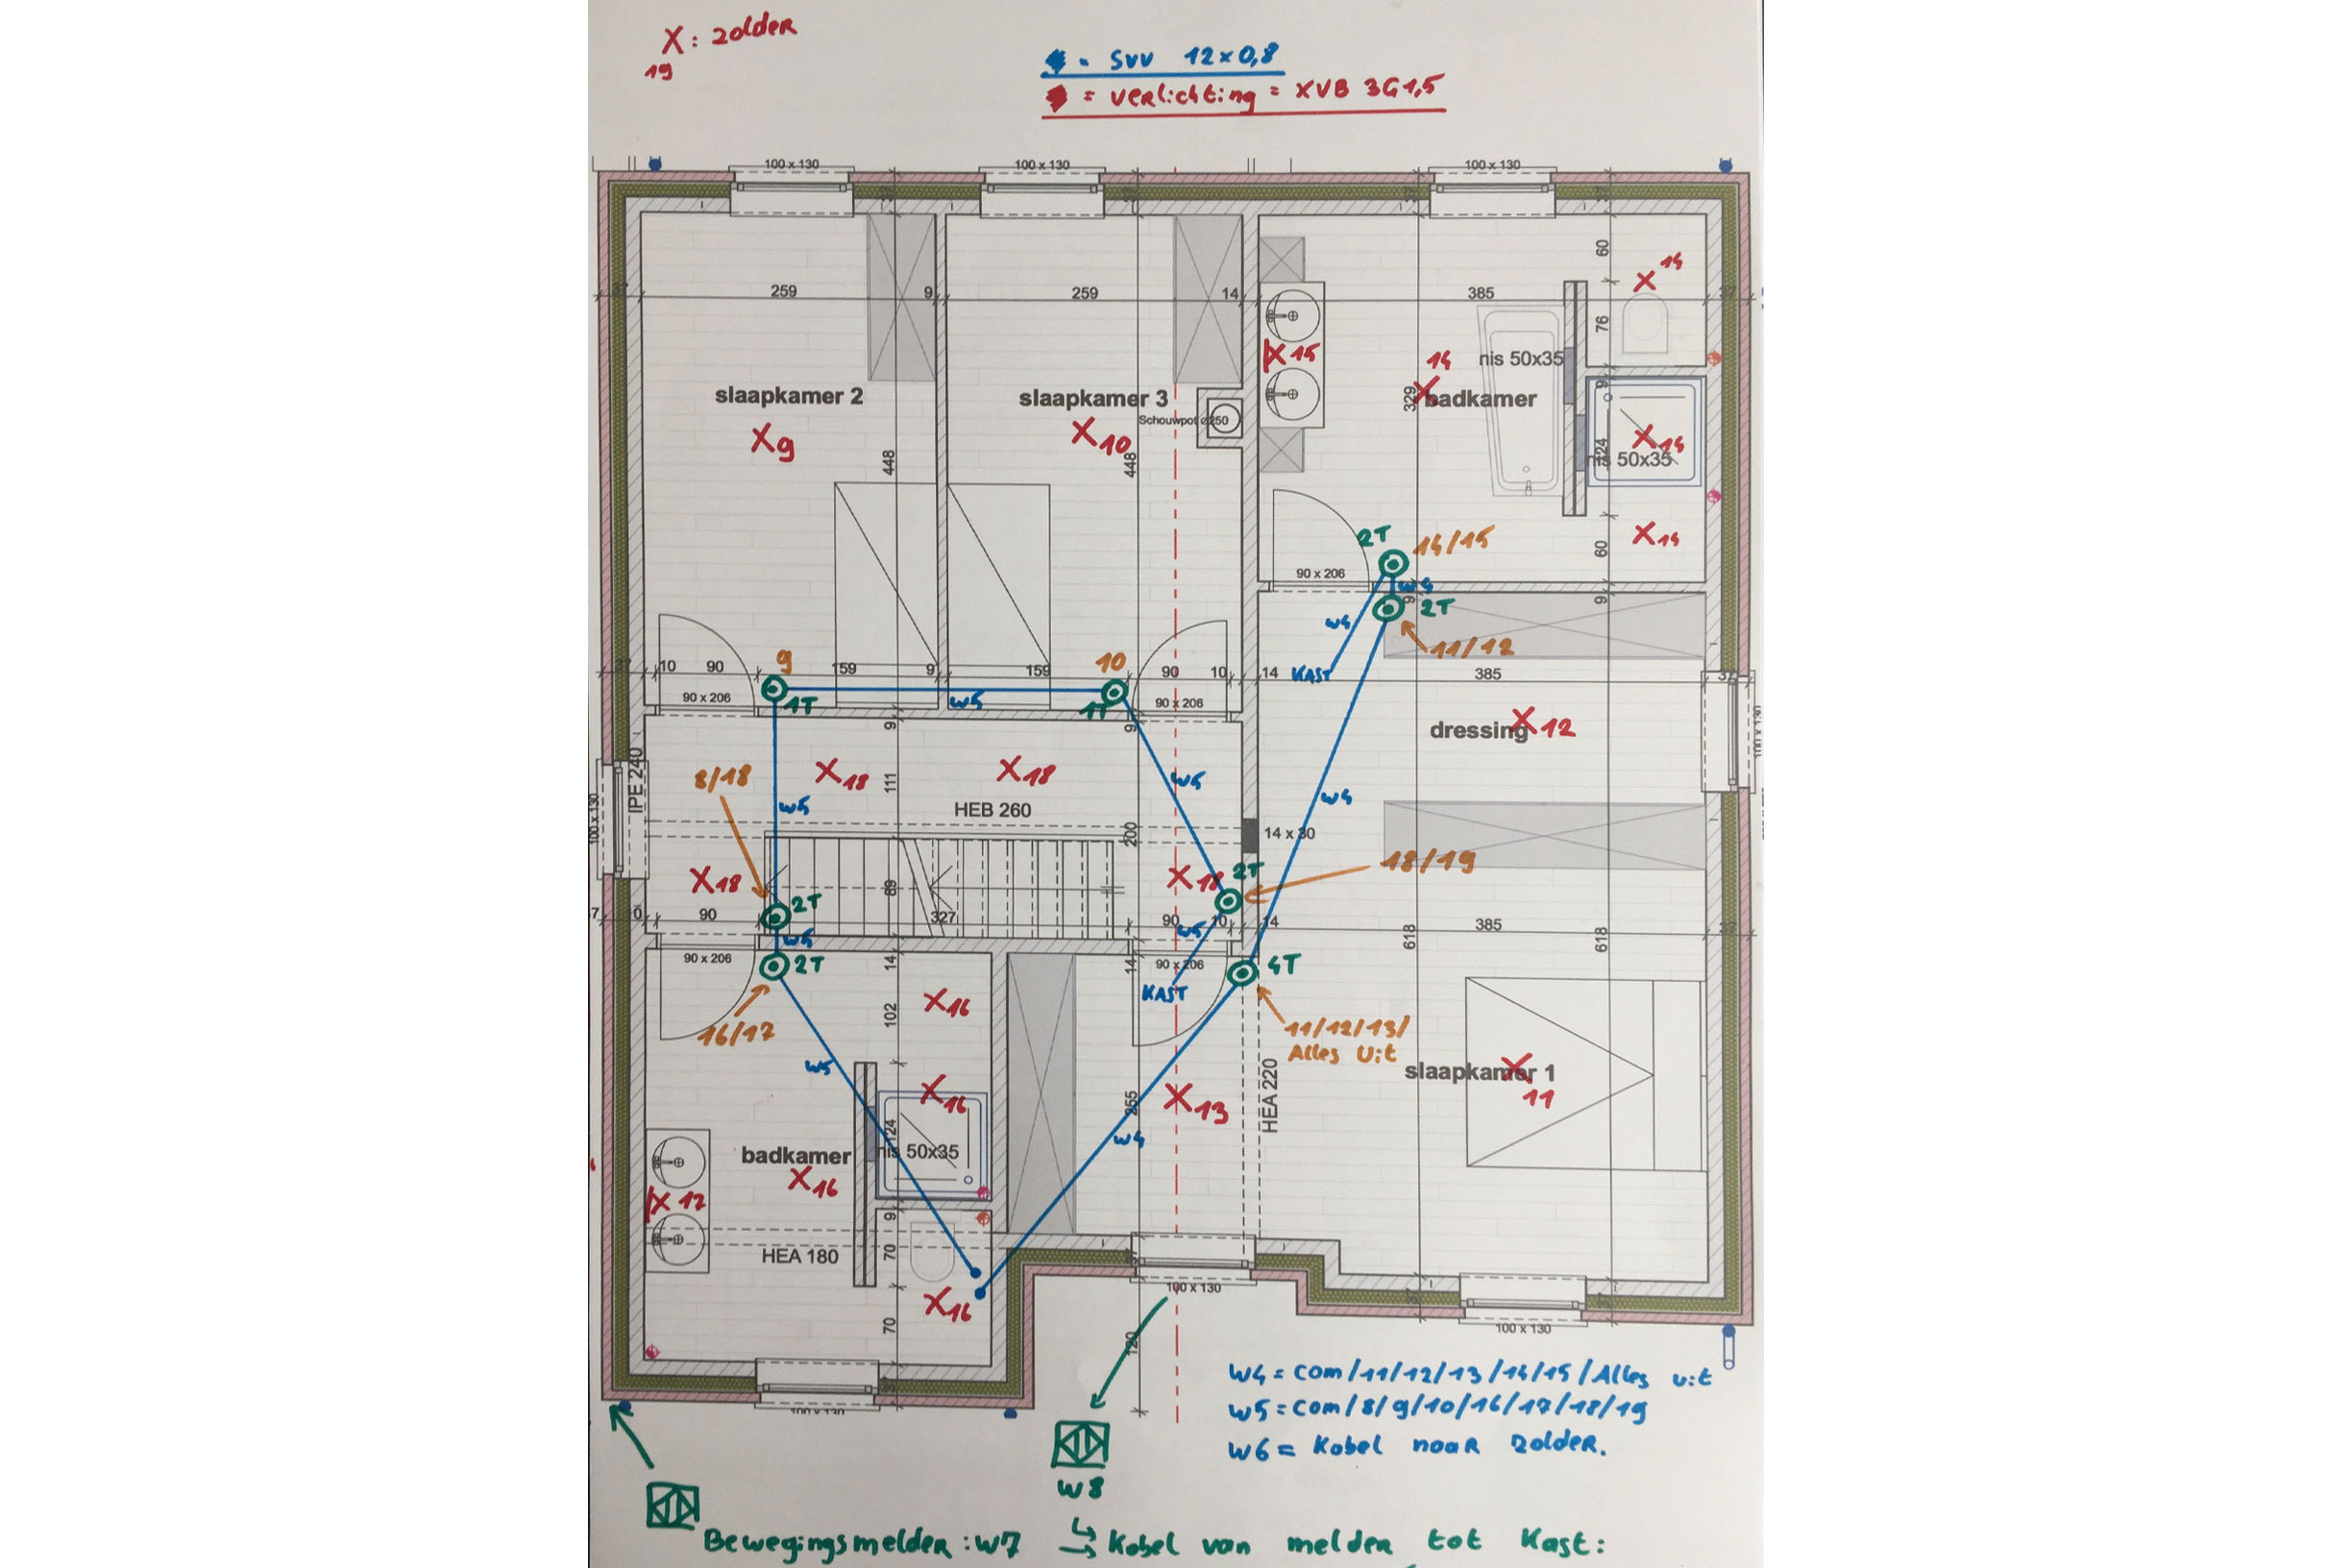 X: zolder
19
= SVV 12x0,8
= verlichting = XVB 3G1,5
100 x 130
100 x 130
100 x 130
259
9
259
14
385
60
76
14
X 15
14
nis 50x35
329
badkamer
9
slaapkamer 2
slaapkamer 3
Schouwpot ø250
X 9
X 10
448
448
124
X 14
nis 50x35
X 14
60
2T
14/15
90 x 206
W4
9
2T
9
W4
11/12
KAST
10
90
9
159
9
159
10
90
10
14
385
37
90 x 206
1T
W5
1T
90 x 206
9
9
dressing
X 12
100 x 130
8/18
X 18
X 18
111
W5
W4
IPE 240
W5
HEB 260
100 x 130
200
14 x 30
X 18
89
X 18
2T
18/19
90
2T
327
90
10
14
385
W5
W5
618
618
90 x 206
2T
14
14
90 x 206
4T
KAST
16/17
X 16
102
11/12/13/
Alles Uit
W5
HEA 220
slaapkamer 1
X
11
X 16
255
X 13
124
W4
badkamer
nis 50x35
X 16
X 17
9
HEA 180
70
X 16
70
100 x 130
100 x 130
120
100 x 130
W4 = com/11/12/13/14/15/Alles uit
W5 = com/8/9/10/16/17/18/19
W6 = Kabel naar zolder.
W8
Bewegingsmelder: W7
Kabel van melder tot Kast: